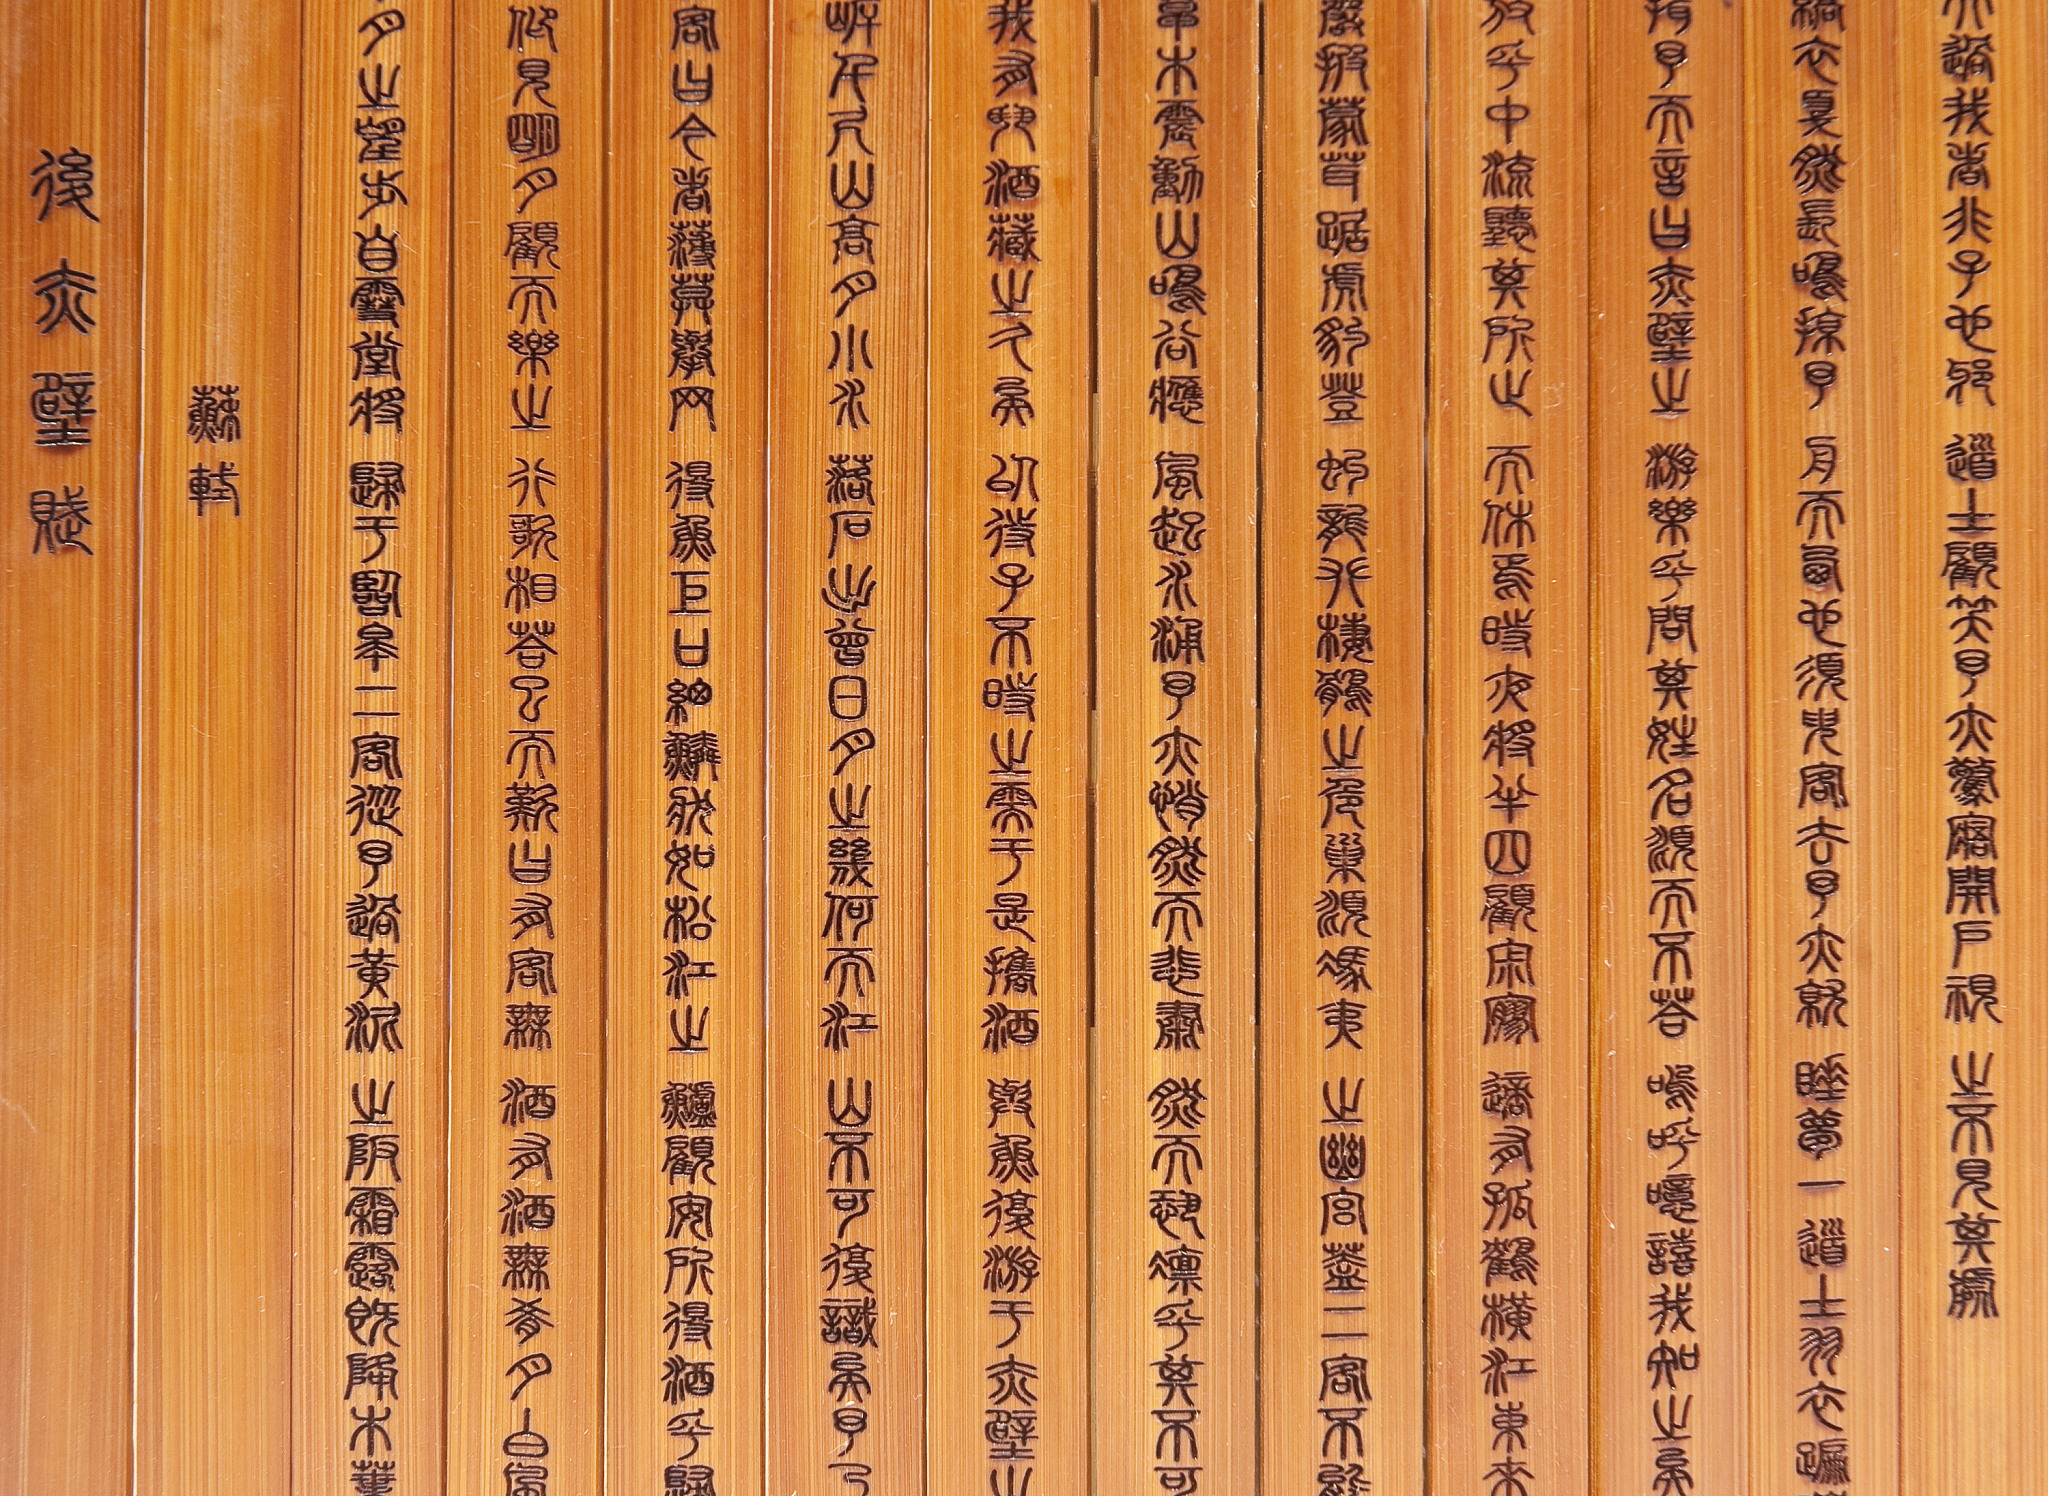 後赤壁賦
蘇軾
月之望步自雪堂將歸于臨皋二客從予過黃泥之阪霜露既降木葉
仰見明月顧而樂之行歌相答已而歎曰有客無酒有酒無肴月白風
客曰今者薄莫舉网得魚巨口細鱗狀如松江之鱸顧安所得酒乎歸
岸千尺山高月小水落石出曾日月之幾何而江山不可復識矣予乃
我有斗酒藏之久矣以待子不時之需于是攜酒與魚復游于赤壁之
草木震動山鳴谷應風起水涌予亦悄然而悲肅然而恐凜乎其不可
巖披蒙茸踞虎豹登虯龍攀棲鶻之危巢俯馮夷之幽宮蓋二客不能
放乎中流聽其所止而休焉時夜將半四顧寂寥適有孤鶴橫江東來
揖予而言曰赤壁之游樂乎問其姓名俯而不答嗚呼噫嘻我知之矣
縞衣戛然長鳴掠予舟而西也須臾客去予亦就睡夢一道士羽衣蹁
過我者非子也邪道士顧笑予亦驚寤開戶視之不見其處